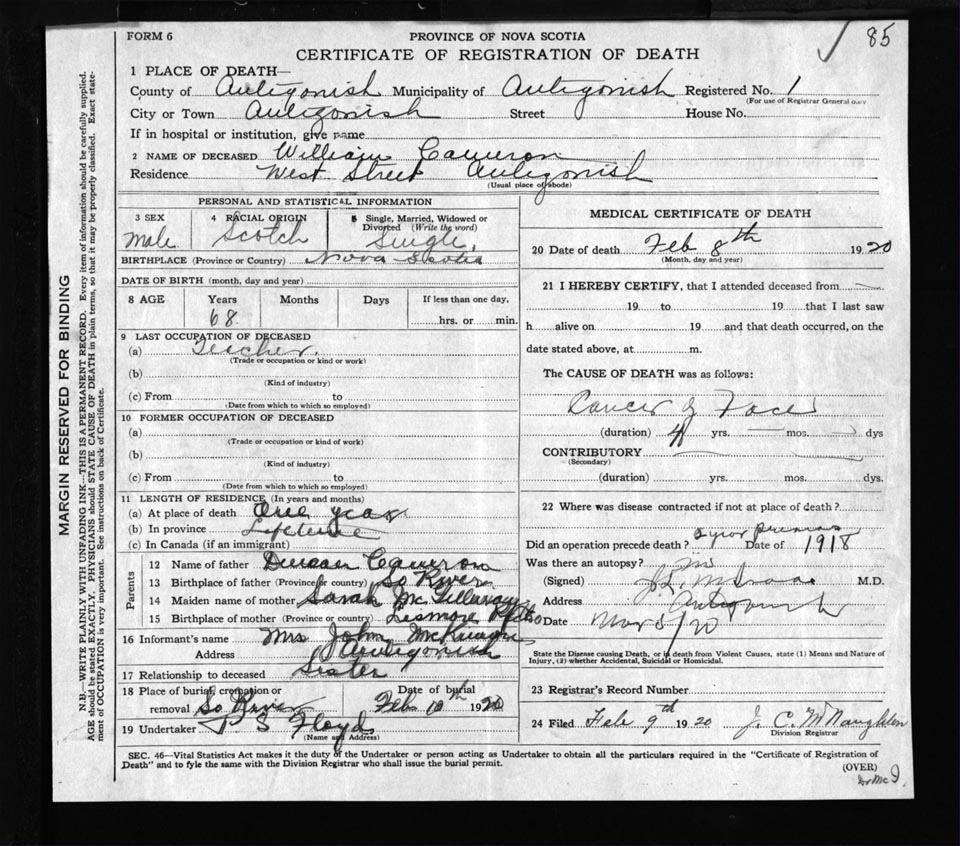 85
FORM 6
PROVINCE OF NOVA SCOTIA
CERTIFICATE OF REGISTRATION OF DEATH
1 PLACE OF DEATH—
County of Antigonish Municipality of Antigonish Registered No. 1
(For use of Registrar General only)
City or Town Antigonish Street House No.
If in hospital or institution, give name
2 NAME OF DECEASED William Cameron
Residence West Street Antigonish
(Usual place of abode)
PERSONAL AND STATISTICAL INFORMATION
3 SEX 4 RACIAL ORIGIN 5 Single, Married, Widowed or Divorced (Write the word)
Male Scotch Single.
BIRTHPLACE (Province or Country) Nova Scotia
DATE OF BIRTH (month, day and year)
8 AGE Years Months Days If less than one day,
68. hrs. or min.
9 LAST OCCUPATION OF DECEASED
(a) Teicher.
(Trade or occupation or kind or work)
(b)
(Kind of industry)
(c) From to
(Date from which to which so employed)
10 FORMER OCCUPATION OF DECEASED
(a)
(Trade or occupation or kind of work)
(b)
(Kind of industry)
(c) From to
(Date from which to which so employed)
11 LENGTH OF RESIDENCE (In years and months)
(a) At place of death One year
(b) In province Lifetime
(c) In Canada (if an immigrant)
Parents
12 Name of father Duncan Cameron
13 Birthplace of father (Province or country) So River
14 Maiden name of mother Sarah McGillivray
15 Birthplace of mother (Province or country) Lismore
16 Informant's name Mrs John
Address Antigonish
17 Relationship to deceased Sister
18 Place of burial, cremation or removal So River Date of burial Feb 10th 1920
19 Undertaker P S Floyd
(Name and Address)
MEDICAL CERTIFICATE OF DEATH
20 Date of death Feb 8th 1920
(Month, day and year)
21 I HEREBY CERTIFY, that I attended deceased from
19 to 19 that I last saw
h alive on 19 and that death occurred, on the
date stated above, at m.
The CAUSE OF DEATH was as follows:
Cancer of Face
(duration) 4 yrs. — mos. dys
CONTRIBUTORY
(Secondary)
(duration) yrs. mos. dys.
22 Where was disease contracted if not at place of death?
Did an operation precede death? Date of 1918
Was there an autopsy? No
(Signed) M.D.
Address Antigonish
Date Mar 5/20
State the Disease causing Death, or in death from Violent Causes, state (1) Means and Nature of
Injury, (2) whether Accidental, Suicidal or Homicidal.
23 Registrar's Record Number
24 Filed Feb 9th 1920 J. C. McNaughton
Division Registrar
SEC. 46—Vital Statistics Act makes it the duty of the Undertaker or person acting as Undertaker to obtain all the particulars required in the "Certificate of Registration of
Death" and to fyle the same with the Division Registrar who shall issue the burial permit.
(OVER)
MARGIN RESERVED FOR BINDING
N.B.—WRITE PLAINLY WITH UNFADING INK—THIS IS A PERMANENT RECORD. Every item of information should be carefully supplied.
AGE should be stated EXACTLY. PHYSICIANS should STATE CAUSE OF DEATH in plain terms, so that it may be properly classified. Exact state-
ment of OCCUPATION is very important. See instructions on back of Certificate.